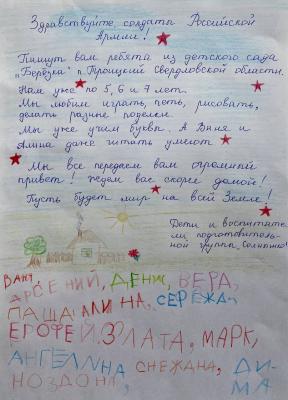 Здравствуйте, солдаты Российской
Армии!
Пишут вам ребята из детского сада
„Берёзка" п.Троицкий Свердловской области.
Нам уже по 5, 6 и 7 лет.
Мы любим играть, петь, рисовать,
делать разные поделки.
Мы уже учим буквы. А Ваня и
Алина даже читать умеют.
Мы все передаем вам огромный
привет! Ждем вас скорее домой!
Пусть будет мир на всей Земле!
Дети и воспитате
ли подготовитель-
ной группы „Солнышко"
ВАНЯ, АРСЕНИЙ, ДЕНИС, ВЕРА,
ПАША, АЛИНА, СЕРЁЖА,
ЕРОФЕЙ, ЗЛАТА, МАРК,
АНГЕЛИНА СНЕЖАНА, ДИ-
МА